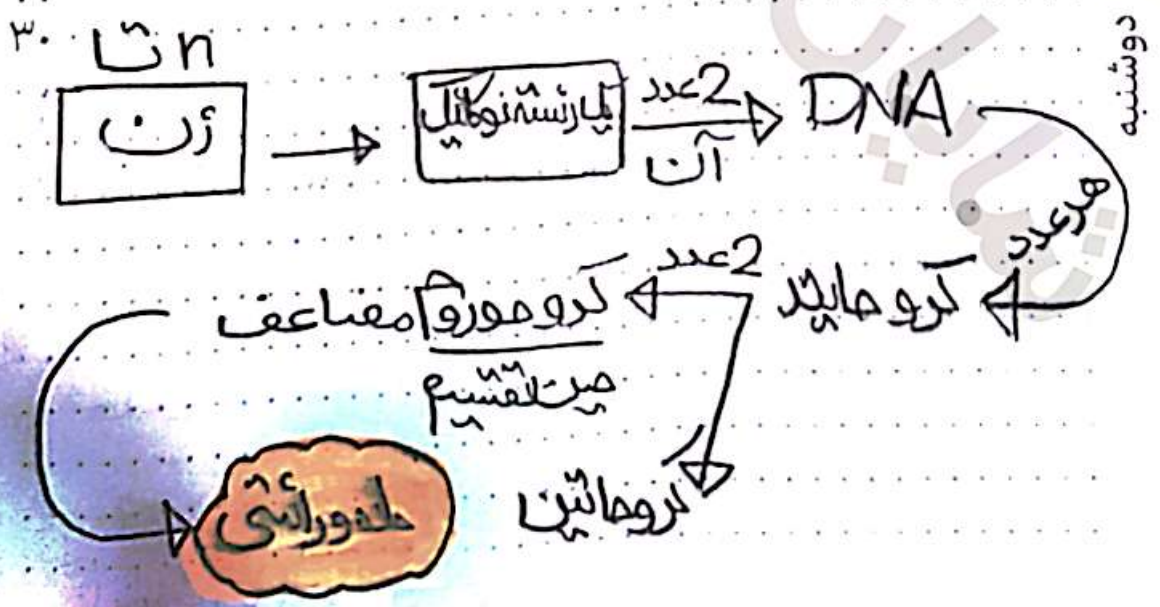 ۳۰
n تا
ژن
یک رشته نوکلئیک
2 عدد
آن
DNA
دوشنبه
هر عدد
کروماتید
2 عدد
کروموزوم مضاعف
حین تقسیم
کروماتین
ماده وراثتی